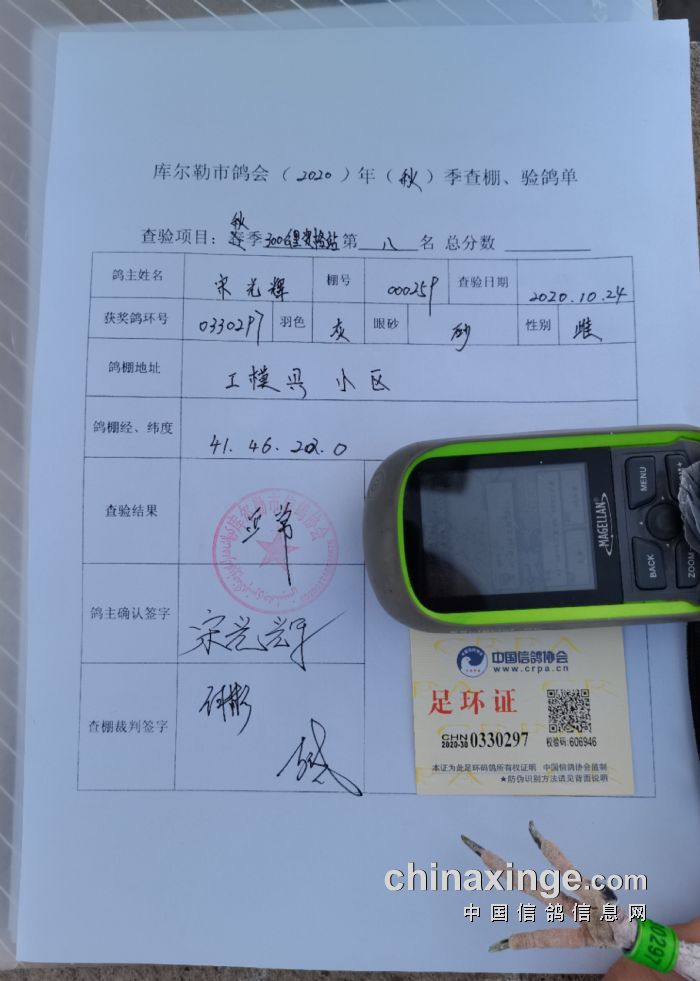 库尔勒市鸽会（2020）年（秋）季查棚、验鸽单
秋
查验项目：春季300公里资格站第 八 名 总分数
鸽主姓名 宋光辉 棚号 000259 查验日期 2020.10.24
获奖鸽环号 0330297 羽色 灰 眼砂 砂 性别 雌
鸽棚地址 工模具小区
鸽棚经、纬度 41.46.202.0
查验结果 正常
鸽主确认签字 宋光辉
查棚裁判签字
MAGELLAN
MENU
BACK
ZOOM
中国信鸽协会
www.crpa.cn
足环证
CHN
2020-30 0330297
校验码: 606946
本证为此足环码鸽所有权证明 中国信鸽协会监制
★防伪识别方法请见背面说明
chinaxinge.com
中国信鸽信息网
0297